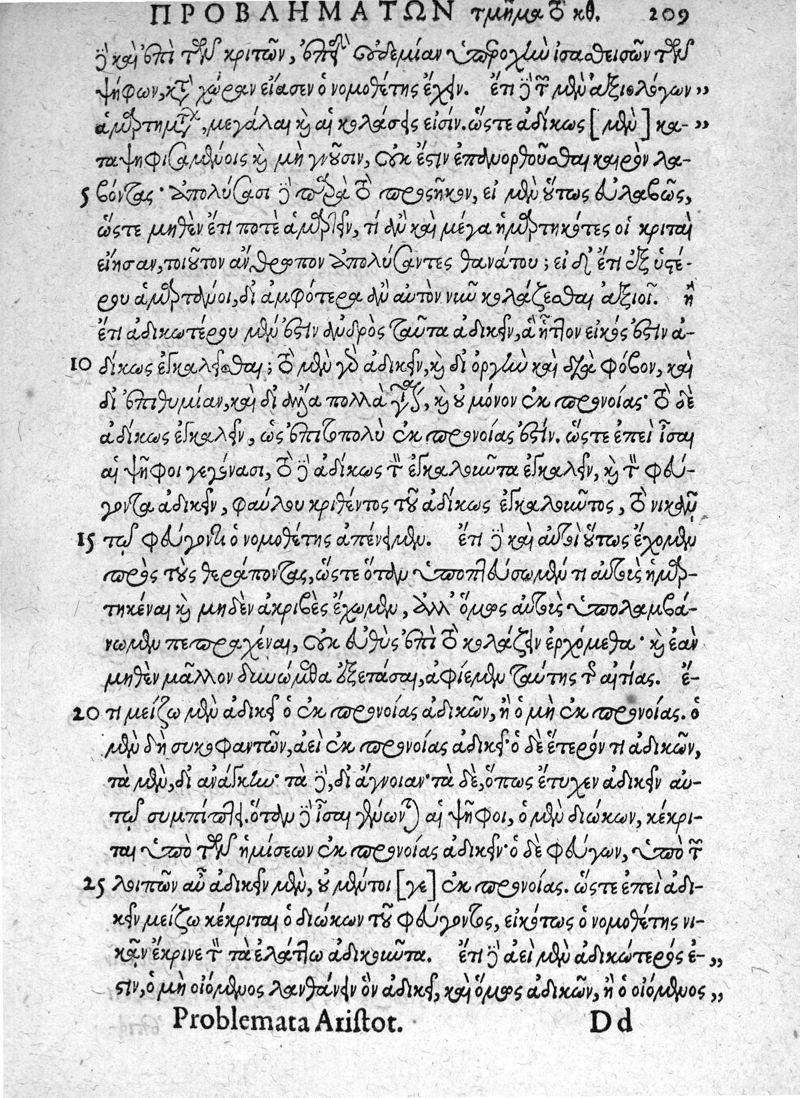 ΠΡΟΒΛΗΜΑΤΩΝ τμῆμα τὸ κθ. 209
δὲ καὶ ἐπὶ τῶν κριτῶν, ἐπεὶ οὐδεμίαν ὑπεροχὴν ἰσαθεισῶν τῶν
ψήφων, κατὰ χώραν εἴασεν ὁ νομοθέτης ἔχειν. ἔτι δὲ τῶν μὲν ἀξιολόγων „
ἁμαρτημάτων, μεγάλαι καὶ αἱ κολάσεις εἰσίν. ὥστε ἀδίκως [μὲν] κα- „
ταψηφισαμένοις καὶ μὴ γνοῦσιν, οὐκ ἔστιν ἐπανορθοῦσθαι καιρὸν λα-
5 βόντας· ἀπολύσασι δὲ παρὰ τὸ προσῆκον, εἰ μὲν οὕτως εὐλαβῶς,
ὥστε μηθὲν ἔτι ποτὲ ἁμαρτεῖν, τί ἂν καὶ μέγα ἡμαρτηκότες οἱ κριταὶ
εἴησαν, τοιοῦτον ἄνθρωπον ἀπολύσαντες θανάτου; εἰ δ' ἔτι ἐξ ὑστέ-
ρου ἁμαρτάνοι, δι' ἀμφότερα ἂν αὐτὸν νῦν κολάζεσθαι ἀξιοῖ. ἢ
ἔτι ἀδικωτέρου μὲν ἐστὶν ἀνδρὸς ταῦτα ἀδικεῖν, ἃ ἧττον εἰκός ἐστιν ἀ-
10 δίκως ἐγκαλεῖσθαι; τὸ μὲν γὰρ ἀδικεῖν, καὶ δι' ὀργὴν καὶ διὰ φόβον, καὶ
δι' ἐπιθυμίαν, καὶ δι' ἄλλα πολλὰ γίνεται, καὶ οὐ μόνον ἐκ προνοίας· τὸ δὲ
ἀδίκως ἐγκαλεῖν, ὡς ἐπιτοπολὺ ἐκ προνοίας ἐστίν. ὥστε ἐπεὶ ἴσαι
αἱ ψῆφοι γεγόνασι, τὸ δὲ ἀδίκως τὸν ἐγκαλοῦντα ἐγκαλεῖν, καὶ τὸν φεύ-
γοντα ἀδικεῖν, φαύλου κριθέντος τοῦ ἀδίκως ἐγκαλοῦντος, τὸ νικᾶν
15 τῷ φεύγοντι ὁ νομοθέτης ἀπένειμεν. ἔτι δὲ καὶ αὐτοὶ οὕτως ἔχομεν
πρὸς τοὺς θεράποντας, ὥστε ὅταν ὑποπτεύσωμέν τι αὐτοὺς ἡμαρ-
τηκέναι καὶ μηδὲν ἀκριβὲς ἔχωμεν, ἀλλ' ὅμως αὐτοὺς ὑπολαμβά-
νωμεν πεπραχέναι, οὐκ εὐθὺς ἐπὶ τὸ κολάζειν ἐρχόμεθα· καὶ ἐὰν
μηθὲν μᾶλλον δυνώμεθα ἐξετάσαι, ἀφίεμεν ταύτης τῆς αἰτίας. ἔ-
20 τι μείζω μὲν ἀδικεῖ ὁ ἐκ προνοίας ἀδικῶν, ἢ ὁ μὴ ἐκ προνοίας. ὁ
μὲν δὴ συκοφαντῶν, ἀεὶ ἐκ προνοίας ἀδικεῖ· ὁ δὲ ἕτερόν τι ἀδικῶν,
τὰ μὲν, δι' ἀνάγκην· τὰ δὲ, δι' ἄγνοιαν· τὰ δὲ, ὅπως ἔτυχεν ἀδικεῖν αὐ-
τῷ συμπίπτει. ὅταν δὲ ἴσαι γένωνται αἱ ψῆφοι, ὁ μὲν διώκων, κέκρι-
ται ὑπὸ τῶν ἡμίσεων ἐκ προνοίας ἀδικεῖν· ὁ δὲ φεύγων, ὑπὸ τῶν
25 λοιπῶν αὖ ἀδικεῖν μὲν, οὐ μέντοι [γε] ἐκ προνοίας. ὥστε ἐπεὶ ἀδι-
κεῖν μείζω κέκριται ὁ διώκων τοῦ φεύγοντος, εἰκότως ὁ νομοθέτης νι-
κᾷν ἔκρινε τὸν τὰ ἐλάττω ἀδικοῦντα. ἔτι δὲ ἀεὶ μὲν ἀδικώτερός ἐ- „
στιν, ὁ μὴ οἰόμενος λανθάνειν ὃν ἀδικεῖ, καὶ ὅμως ἀδικῶν, ἢ ὁ οἰόμενος „
Problemata Aristot. D d